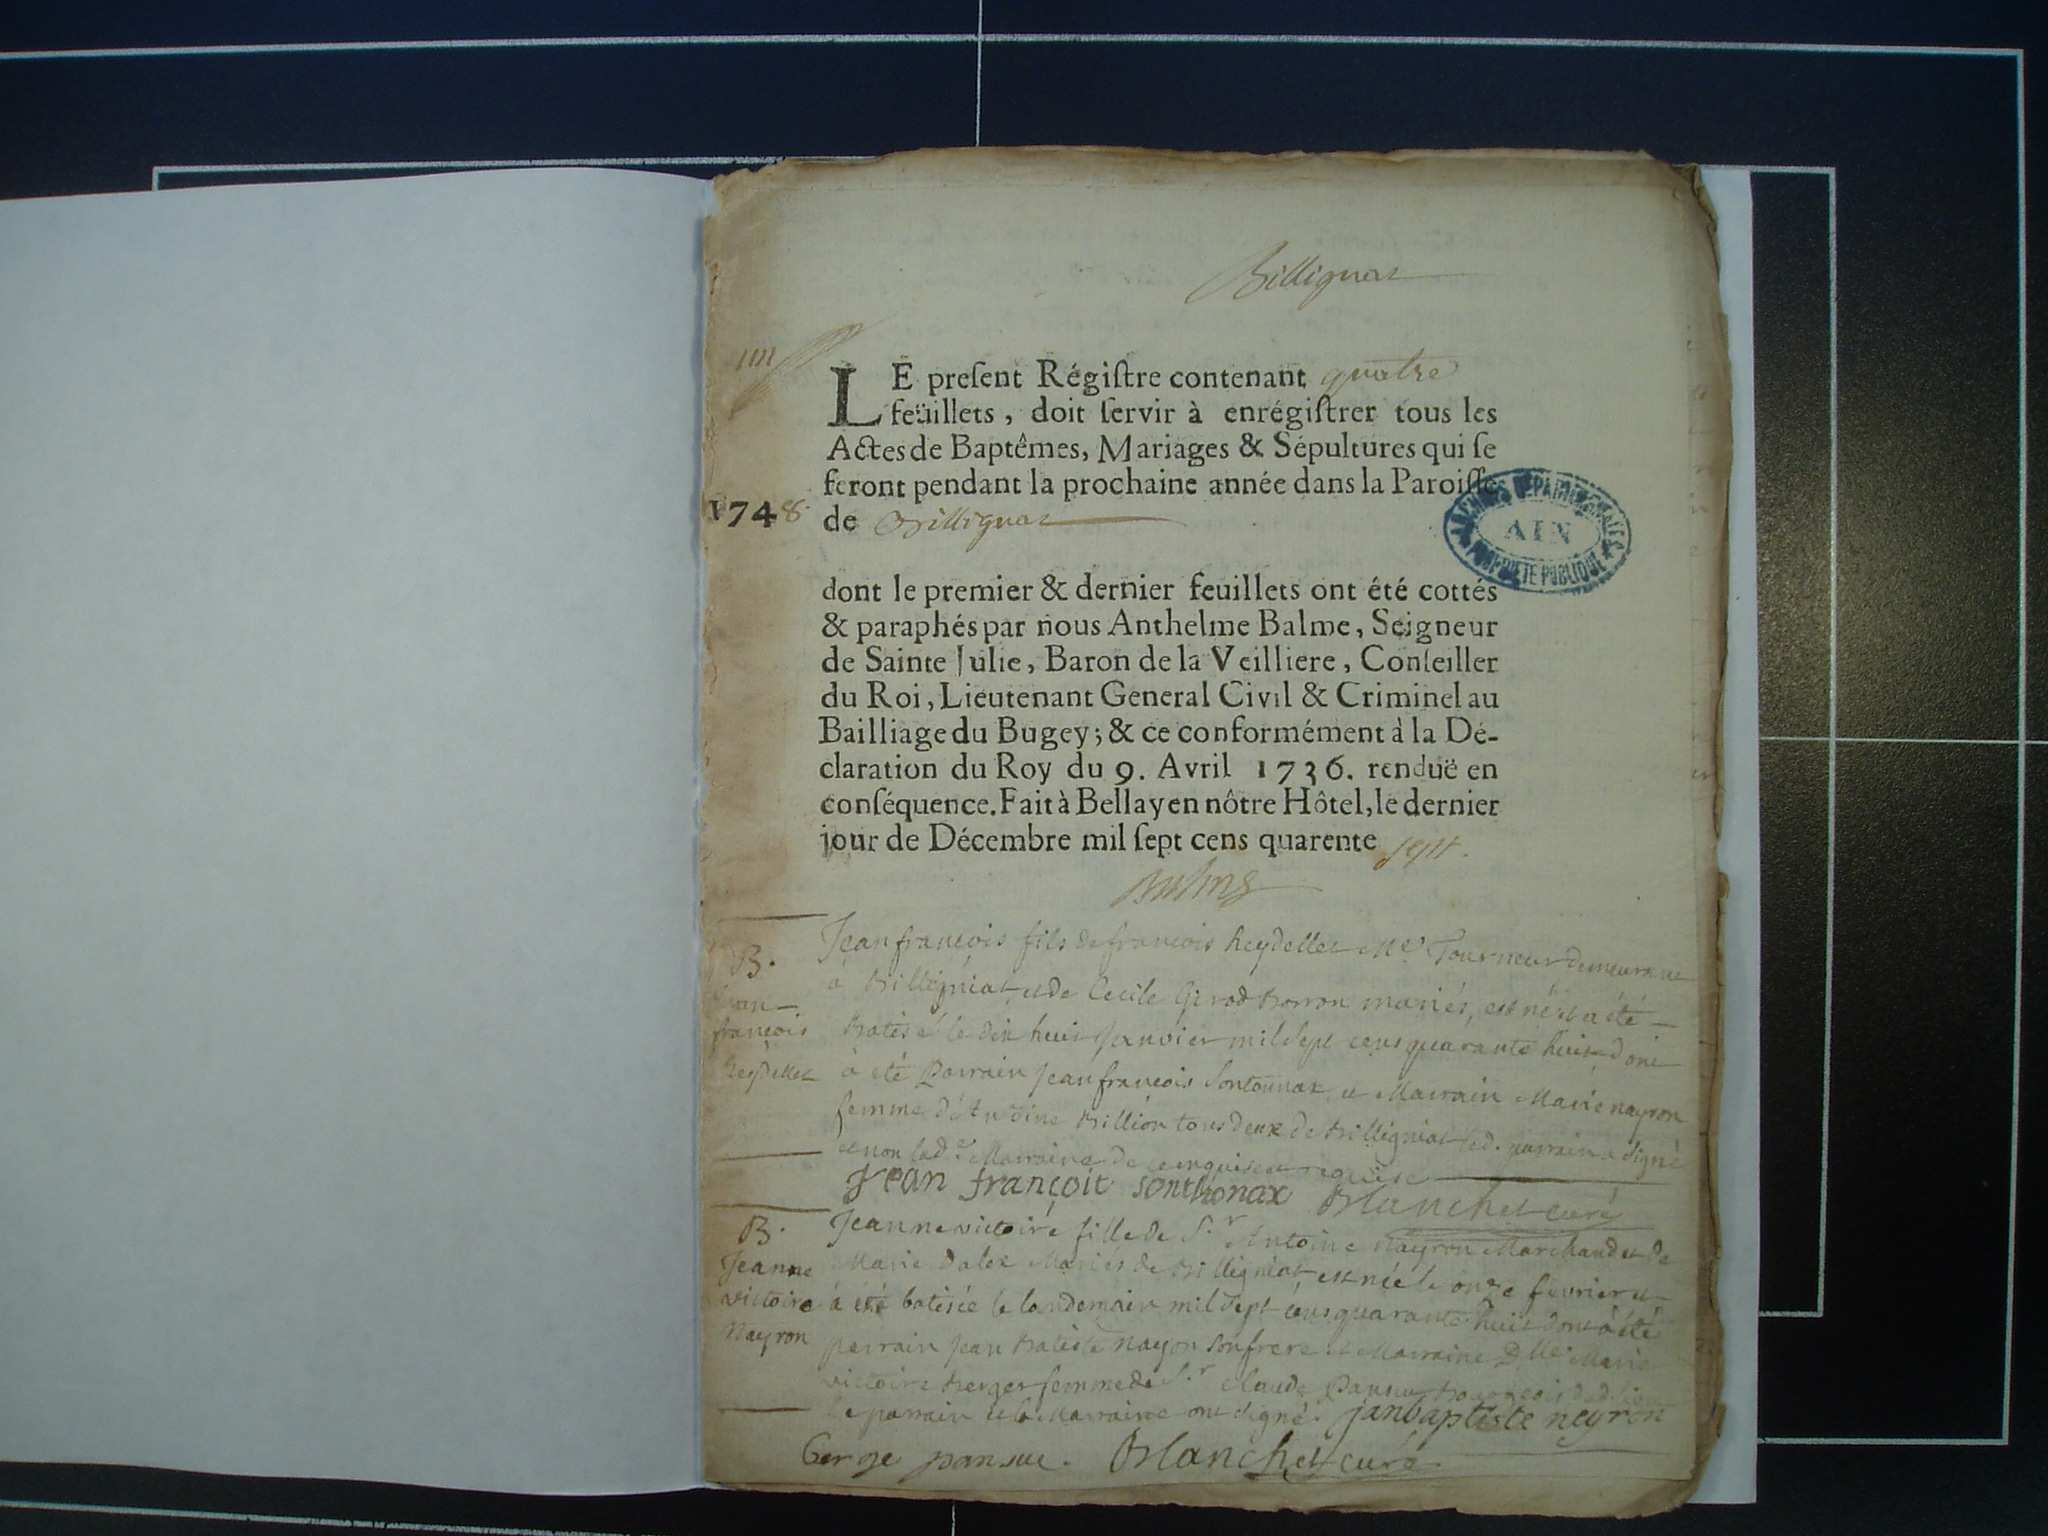 Billignat
IIII
LE present Régistre contenant quatre
feüillets, doit servir à enrégistrer tous les
Actes de Baptêmes, Mariages & Sépultures qui se
feront pendant la prochaine année dans la Paroisse
1748 de Billignat
ARCHIVES DEPARTEMENTALES
AIN
PROPRIETE PUBLIQUE
dont le premier & dernier feuillets ont été cottés
& paraphés par nous Anthelme Balme, Seigneur
de Sainte Julie, Baron de la Veilliere, Conseiller
du Roi, Lieutenant General Civil & Criminel au
Bailliage du Bugey; & ce conformément à la Dé-
claration du Roy du 9. Avril 1736. renduë en
conséquence. Fait à Bellay en nôtre Hôtel, le dernier
jour de Décembre mil sept cens quarente sept.
Balme
B.
Jean
françois
Reydellet
Jean françois fils de françois Reydellet Me. Tourneur demeurant
à Billigniat et de Cecile Girod Borron mariés, est né et a été
batisé le dix huit Janvier mil sept cens quarante huit dont
à été Parrain Jean françois Sontonnax et Marraine Marie nayron
femme d'Antoine Billion tous deux de Billigniat led. parrain a signé
et non lad.e Marraine de ce enquise et requise
Jean françoit sonthonax Blanchet curé
B.
Jeanne
victoire
Nayron
Jeanne victoire fille de S.r Antoine Nayron Marchand et de
Marie Dalex Mariés de Billigniat est née le onze fevrier et
à été batisée le landemain mil sept cens quarante huit dont à été
parrain Jean Batiste Nayron son frere et Marraine Dlle. Marie
victoire Berger femme de S.r Claude Pansu
le parrain et la Marraine ont signé. janbaptiste neyron
Berge pansue. Blanchet curé